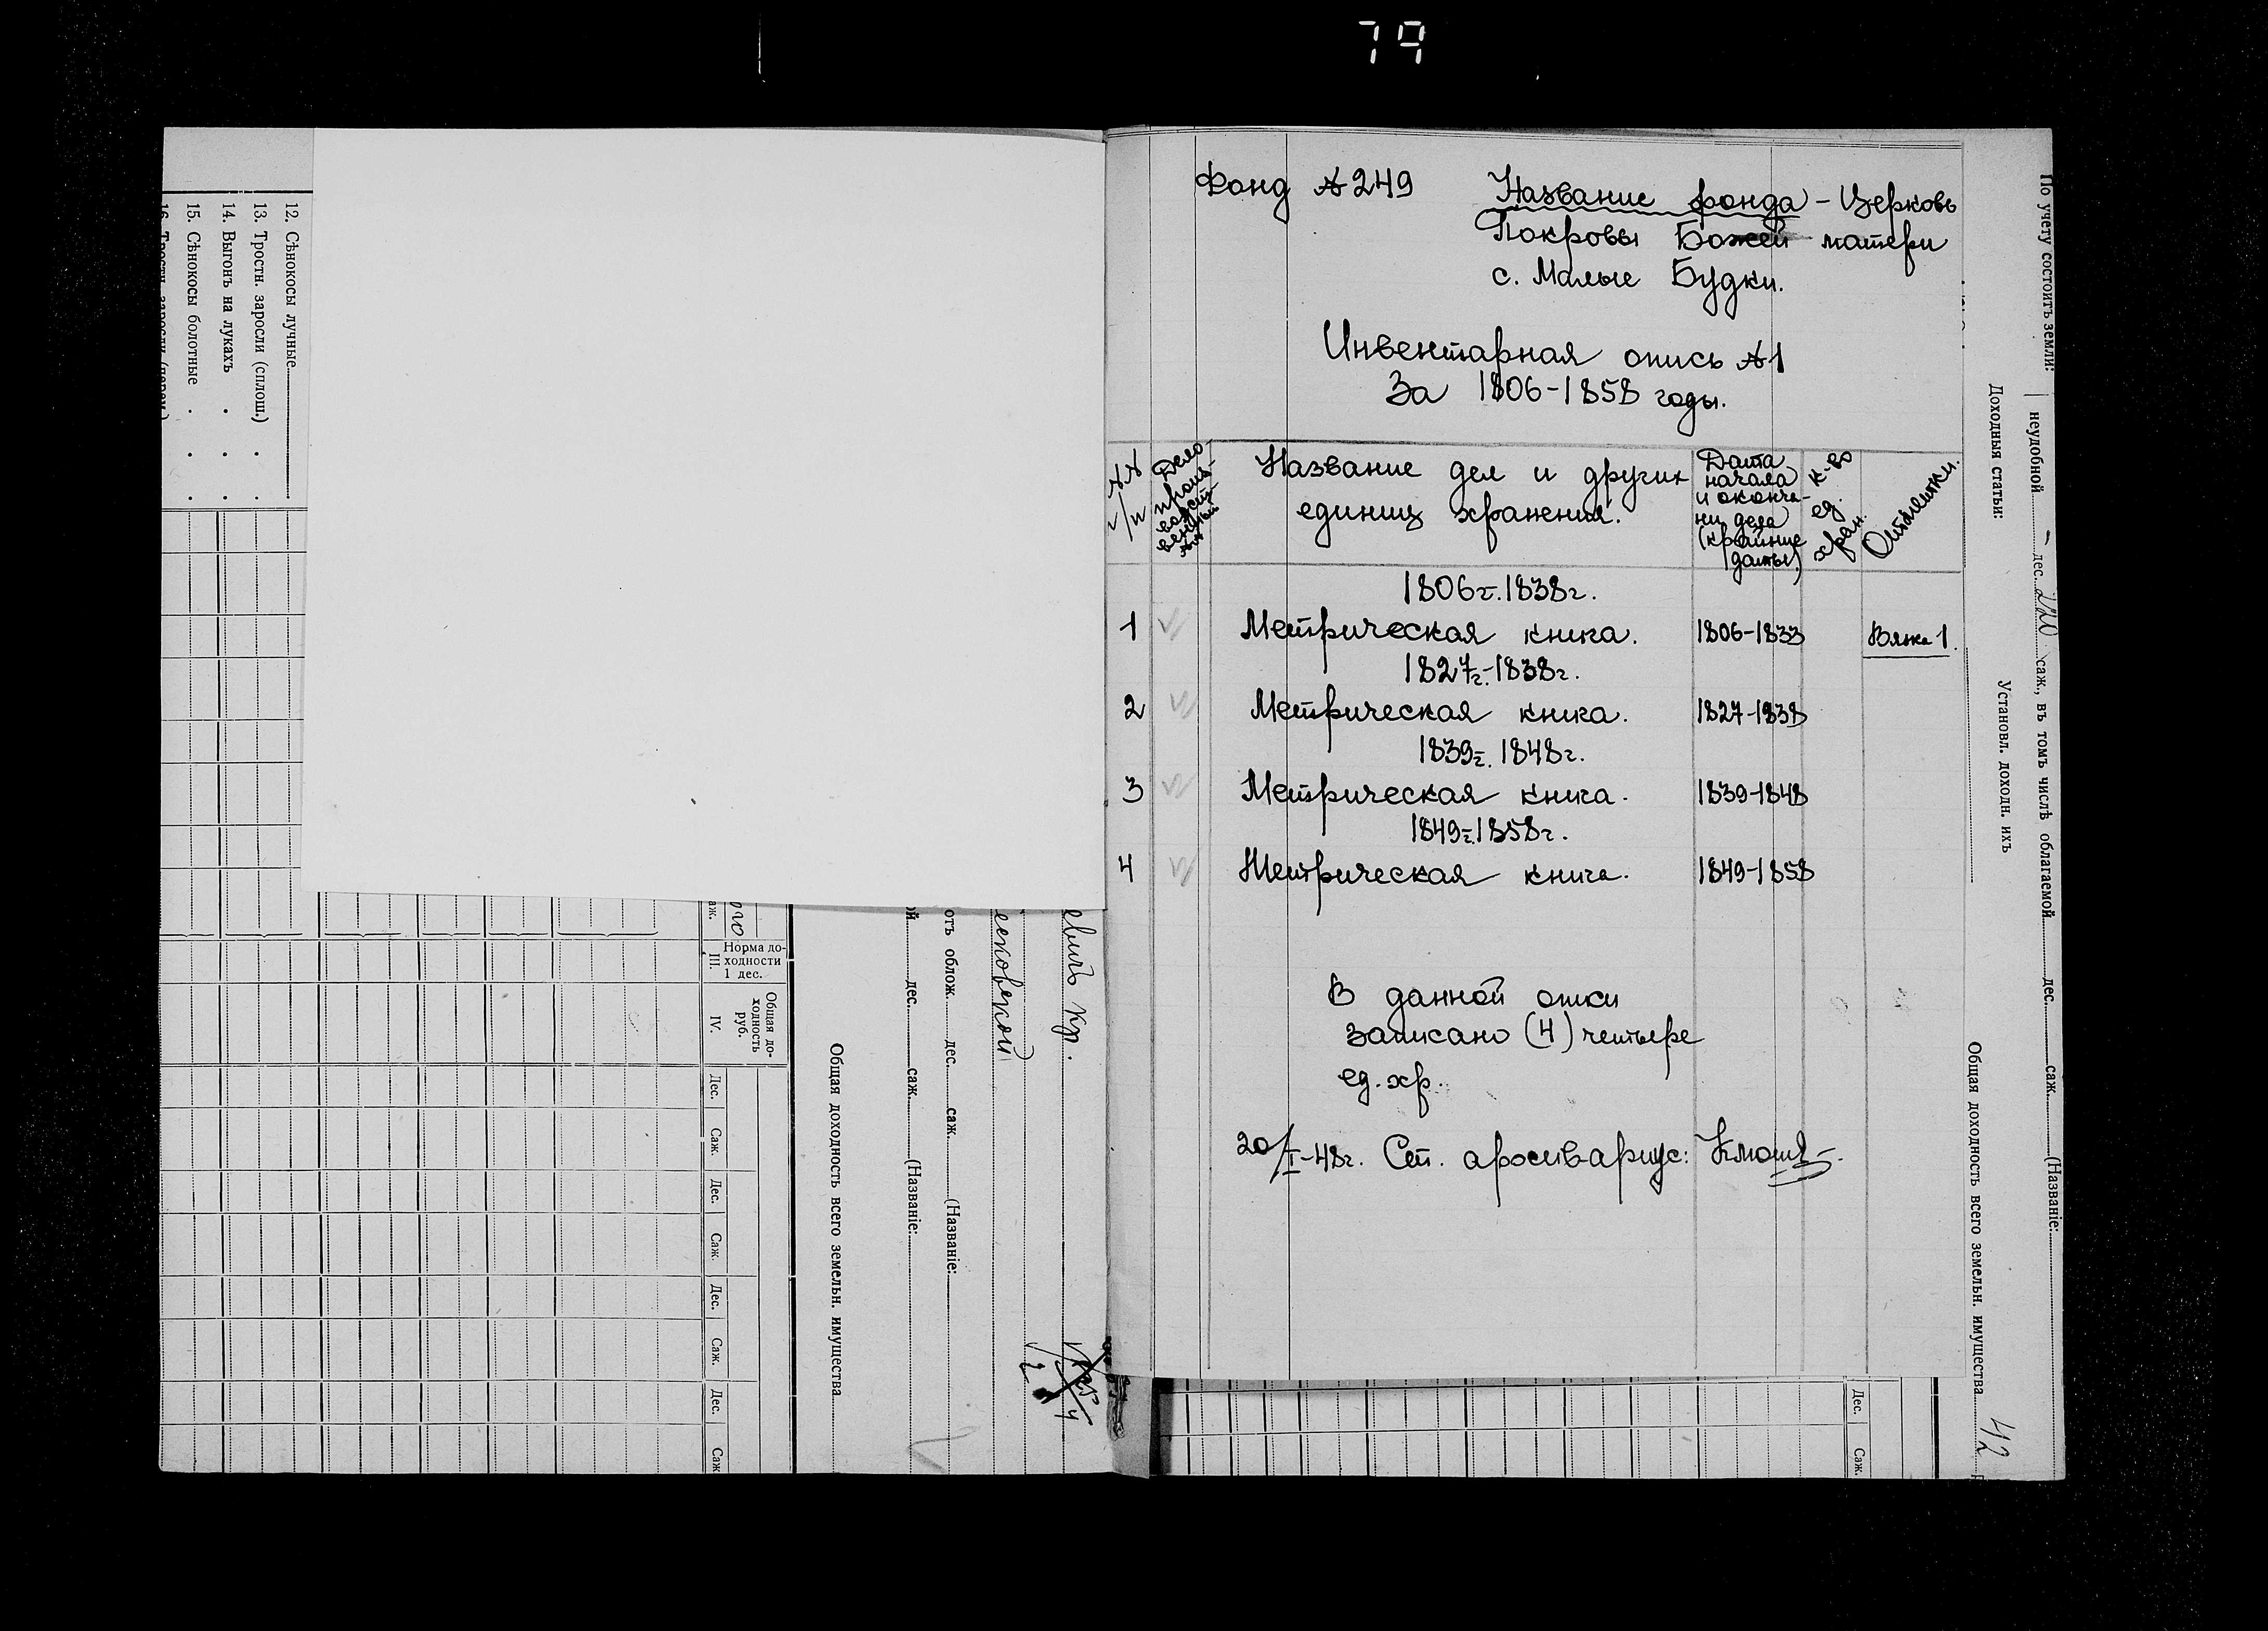 79
12. Сѣнокосы лучные
13. Тростн. заросли (сплош.)
14. Выгонъ на лукахъ
15. Сѣнокосы болотные
Норма доходности
1 дес.
III.
Общая доходность
руб.
IV.
Дес. Саж. Дес. Саж. Дес. Саж. Дес. Саж.
Общая доходность всего земельн. имущества
дес. саж. (Названіе:
отъ облож. дес. саж. (Названіе:
евичъ кр.
Фонд № 249
Название фонда - Церковь
Покровы Божей матери
с. Малые Будки.
Инвентарная опись №1
За 1806-1858 годы.
№№ п/п
Дело-
произ-
водст-
венный
№№
Название дел и других
единиц хранения.
Дата
начала
и оконча-
ни дела
(крайние
даты)
к-во
ед.
хран.
Отметки.
1806г.1838г.
1 Метрическая книга. 1806-1833 Вязка 1.
1827г.-1838г.
2 Метрическая книга. 1827-1838
1839г. 1848г.
3 Метрическая книга. 1839-1848
1849г.1858г.
4 Метрическая книга. 1849-1858
В данной описи
записано (4) четыре
ед. хр.
20/I-48г. Ст. архивариус:
По учету состоитъ земли: неудобной дес. саж., въ томъ числѣ облагаемой дес. саж. (Названіе:
Доходныя статьи: Установл. доходн. ихъ
Общая доходность всего земельн. имущества 42
Дес. Саж.